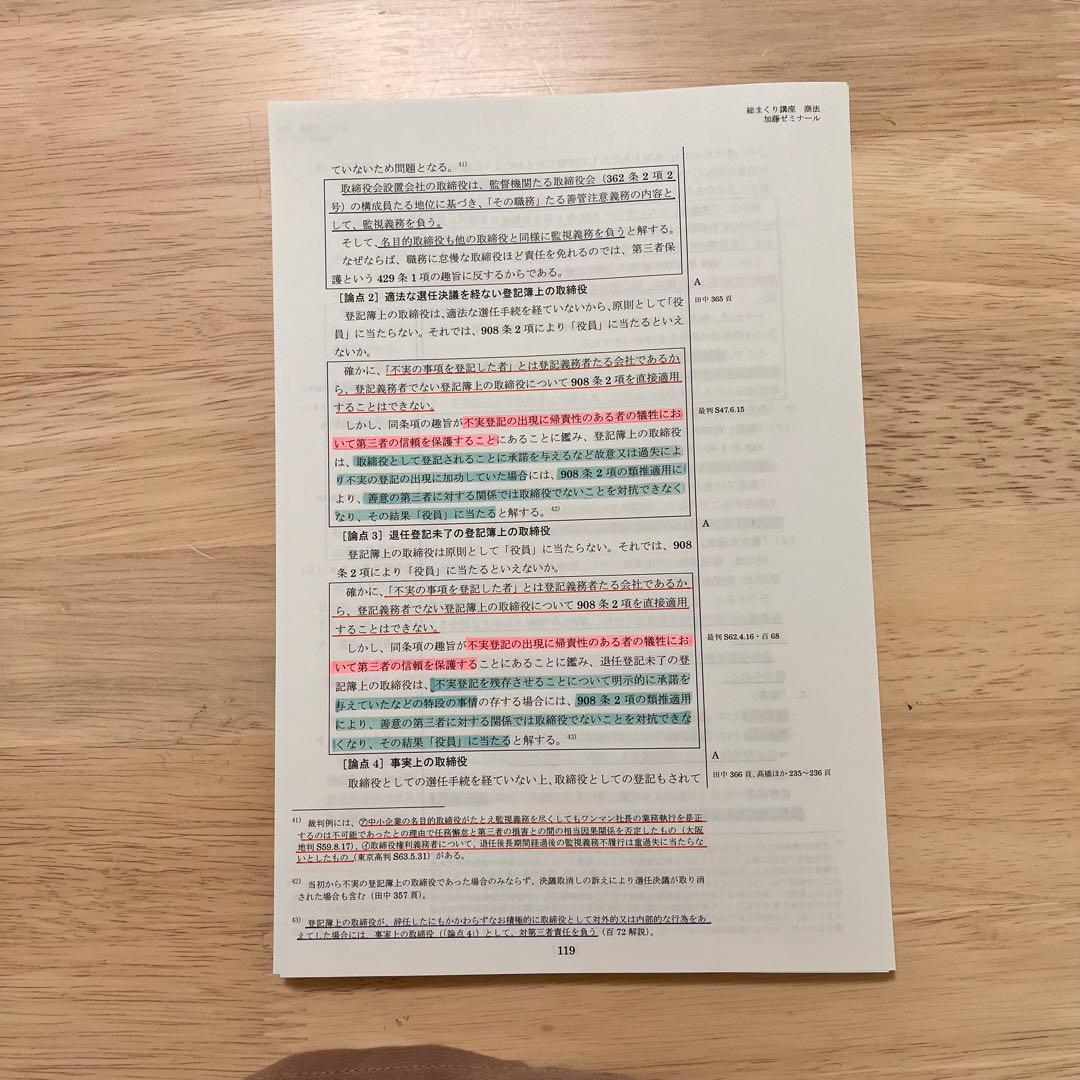 総まくり講座　商法
加藤ゼミナール
ていないため問題となる。41)
取締役会設置会社の取締役は、監督機関たる取締役会（362 条 2 項 2
号）の構成員たる地位に基づき、「その職務」たる善管注意義務の内容と
して、監視義務を負う。
そして、名目的取締役も他の取締役と同様に監視義務を負うと解する。
なぜならば、職務に怠慢な取締役ほど責任を免れるのでは、第三者保
護という 429 条 1 項の趣旨に反するからである。
［論点 2］適法な選任決議を経ない登記簿上の取締役
A
登記簿上の取締役は、適法な選任手続を経ていないから、原則として「役
田中 365 頁
員」に当たらない。それでは、908 条 2 項により「役員」に当たるといえ
ないか。
確かに、「不実の事項を登記した者」とは登記義務者たる会社であるか
ら、登記義務者でない登記簿上の取締役について 908 条 2 項を直接適用
することはできない。
しかし、同条項の趣旨が不実登記の出現に帰責性のある者の犠牲にお
最判 S47.6.15
いて第三者の信頼を保護することにあることに鑑み、登記簿上の取締役
は、取締役として登記されることに承諾を与えるなど故意又は過失によ
り不実の登記の出現に加功していた場合には、908 条 2 項の類推適用に
より、善意の第三者に対する関係では取締役でないことを対抗できなく
なり、その結果「役員」に当たると解する。42)
［論点 3］退任登記未了の登記簿上の取締役
A
登記簿上の取締役は原則として「役員」に当たらない。それでは、908
条 2 項により「役員」に当たるといえないか。
確かに、「不実の事項を登記した者」とは登記義務者たる会社であるか
ら、登記義務者でない登記簿上の取締役について 908 条 2 項を直接適用
することはできない。
しかし、同条項の趣旨が不実登記の出現に帰責性のある者の犠牲にお
最判 S62.4.16・百 68
いて第三者の信頼を保護することにあることに鑑み、退任登記未了の登
記簿上の取締役は、不実登記を残存させることについて明示的に承諾を
与えていたなどの特段の事情の存する場合には、908 条 2 項の類推適用
により、善意の第三者に対する関係では取締役でないことを対抗できな
くなり、その結果「役員」に当たると解する。43)
［論点 4］事実上の取締役
A
取締役としての選任手続を経ていない上、取締役としての登記もされて
田中 366 頁、髙橋ほか 235～236 頁
41) 裁判例には、㋐中小企業の名目的取締役がたとえ監視義務を尽くしてもワンマン社長の業務執行を是正
するのは不可能であったとの理由で任務懈怠と第三者の損害との間の相当因果関係を否定したもの（大阪
地判 S59.8.17）、㋑取締役権利義務者について、退任後長期間経過後の監視義務不履行は重過失に当たらな
いとしたもの（東京高判 S63.5.31）がある。
42) 当初から不実の登記簿上の取締役であった場合のみならず、決議取消しの訴えにより選任決議が取り消
された場合も含む（田中 357 頁）。
43) 登記簿上の取締役が、辞任したにもかかわらずなお積極的に取締役として対外的又は内部的な行為をあ
えてした場合には、事実上の取締役（「論点 4」）として、対第三者責任を負う（百 72 解説）。
119